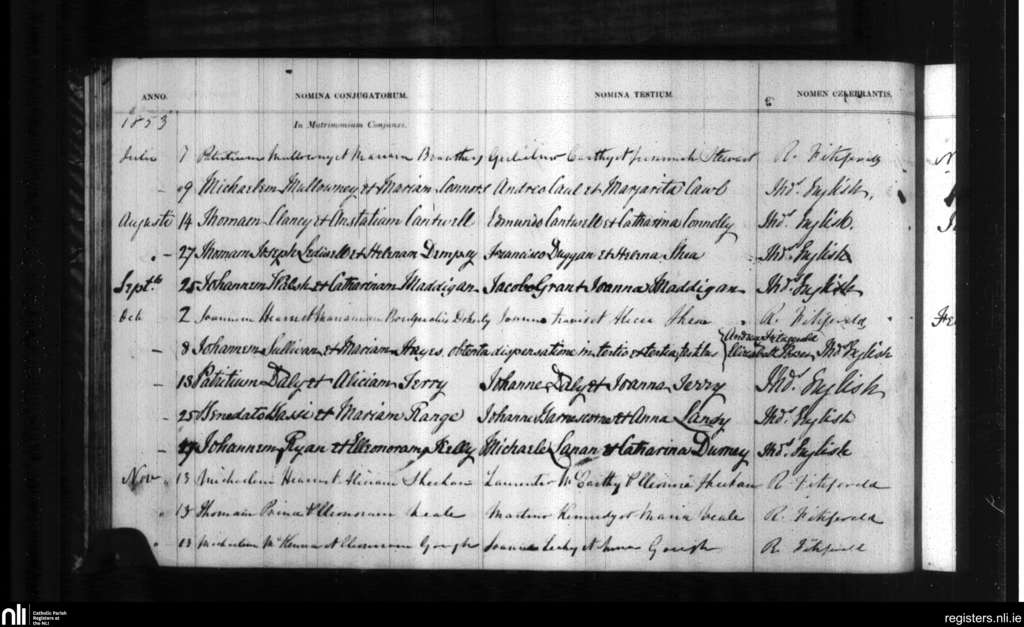 ANNO. NOMINA CONJUGATORUM. NOMINA TESTIUM. NOMEN CELEBRANTIS.
1853 In Matrimonium Conjunxi.
Julii 7 Patritium Mullowny et Mariam Gulielmo Carthy et Stewart R. Fitzgerald
" 9 Michaelem Mullowney et Mariam Connors Andreo Caul et Margarita Cawl Thos. English
Augusti 14 Thomam Clancy et Anstatiam Cantwell Edmundo Cantwell et Catharina Connolly Thos. English
" 27 Thomam Joseph Ledwell et Helenam Dempsy Francisco Duggan et Helena Shea Thos. English
Septbr 25 Johannem Walsh et Catharinam Maddigan Jacobo Grant et Joanna Maddigan Thos. English
Oct 2 Joannem et Mariannam Doherty et Alicia Shea R. Fitzgerald
" 8 Johannem Sullivan et Mariam Hayes, obtenta dispensatione in tertio et tertio, testibus Andrea Fitzgerald Elizabeth Power Thos English
" 13 Patritium Daly et Aliciam Terry Johanne Daly et Joanna Terry Thos. English
" 25 Benedato Sassi et Mariam Range Johanne et Anna Landy Thos. English
" 27 Johannem Ryan et Elleonoram Kelly Michaele Lanan et Catharina Durney Thos. English
Nov 13 Michaelem et Sheehan Laurentio McCarthy & Sheehan R. Fitzgerald
" 13 Thomam Prince & Elleonoram Neale Martino Kennedy et Maria Neale R. Fitzgerald
" 13 Michaelem McKenna et Elleonoram Gough Joanne et Gough R. Fitzgerald
nli Catholic Parish Registers at the NLI
registers.nli.ie